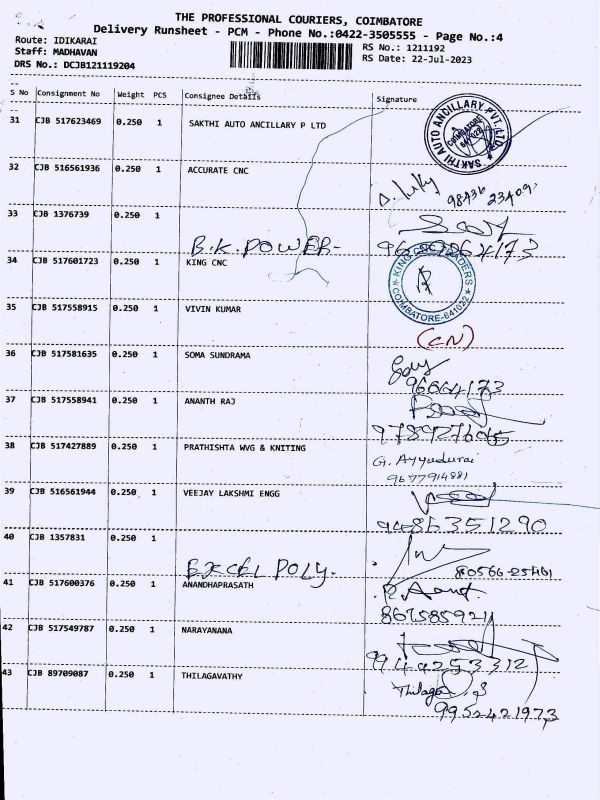 THE PROFESSIONAL COURIERS, COIMBATORE
Delivery Runsheet - PCM - Phone No.:0422-3505555 - Page No.:4
Route: IDIKARAI
RS No.: 1211192
Staff: MADHAVAN
RS Date: 22-Jul-2023
DRS No.: DCJB121119204
S No Consignment No Weight PCS Consignee Details Signature
31 CJB 517623469 0.250 1 SAKTHI AUTO ANCILLARY P LTD
SAKTHI AUTO ANCILLARY PVT. LTD. COIMBATORE 641020
32 CJB 516561936 0.250 1 ACCURATE CNC
98436 23409
33 CJB 1376739 0.250 1
B.K. POWER-
34 CJB 517601723 0.250 1 KING CNC
KING COIMBATORE-641022
35 CJB 517558915 0.250 1 VIVIN KUMAR
(CN)
36 CJB 517581635 0.250 1 SOMA SUNDRAMA
37 CJB 517558941 0.250 1 ANANTH RAJ
38 CJB 517427889 0.250 1 PRATHISHTA WVG & KNITING
G. Ayyadurai
9677914881
39 CJB 516561944 0.250 1 VEEJAY LAKSHMI ENGG
9486351290
40 CJB 1357831 0.250 1
EXCEL POLY.
41 CJB 517600376 0.250 1 ANANDHAPRASATH
42 CJB 517549787 0.250 1 NARAYANANA
9944253312
43 CJB 89709087 0.250 1 THILAGAVATHY
Thilaga .S
9952421973